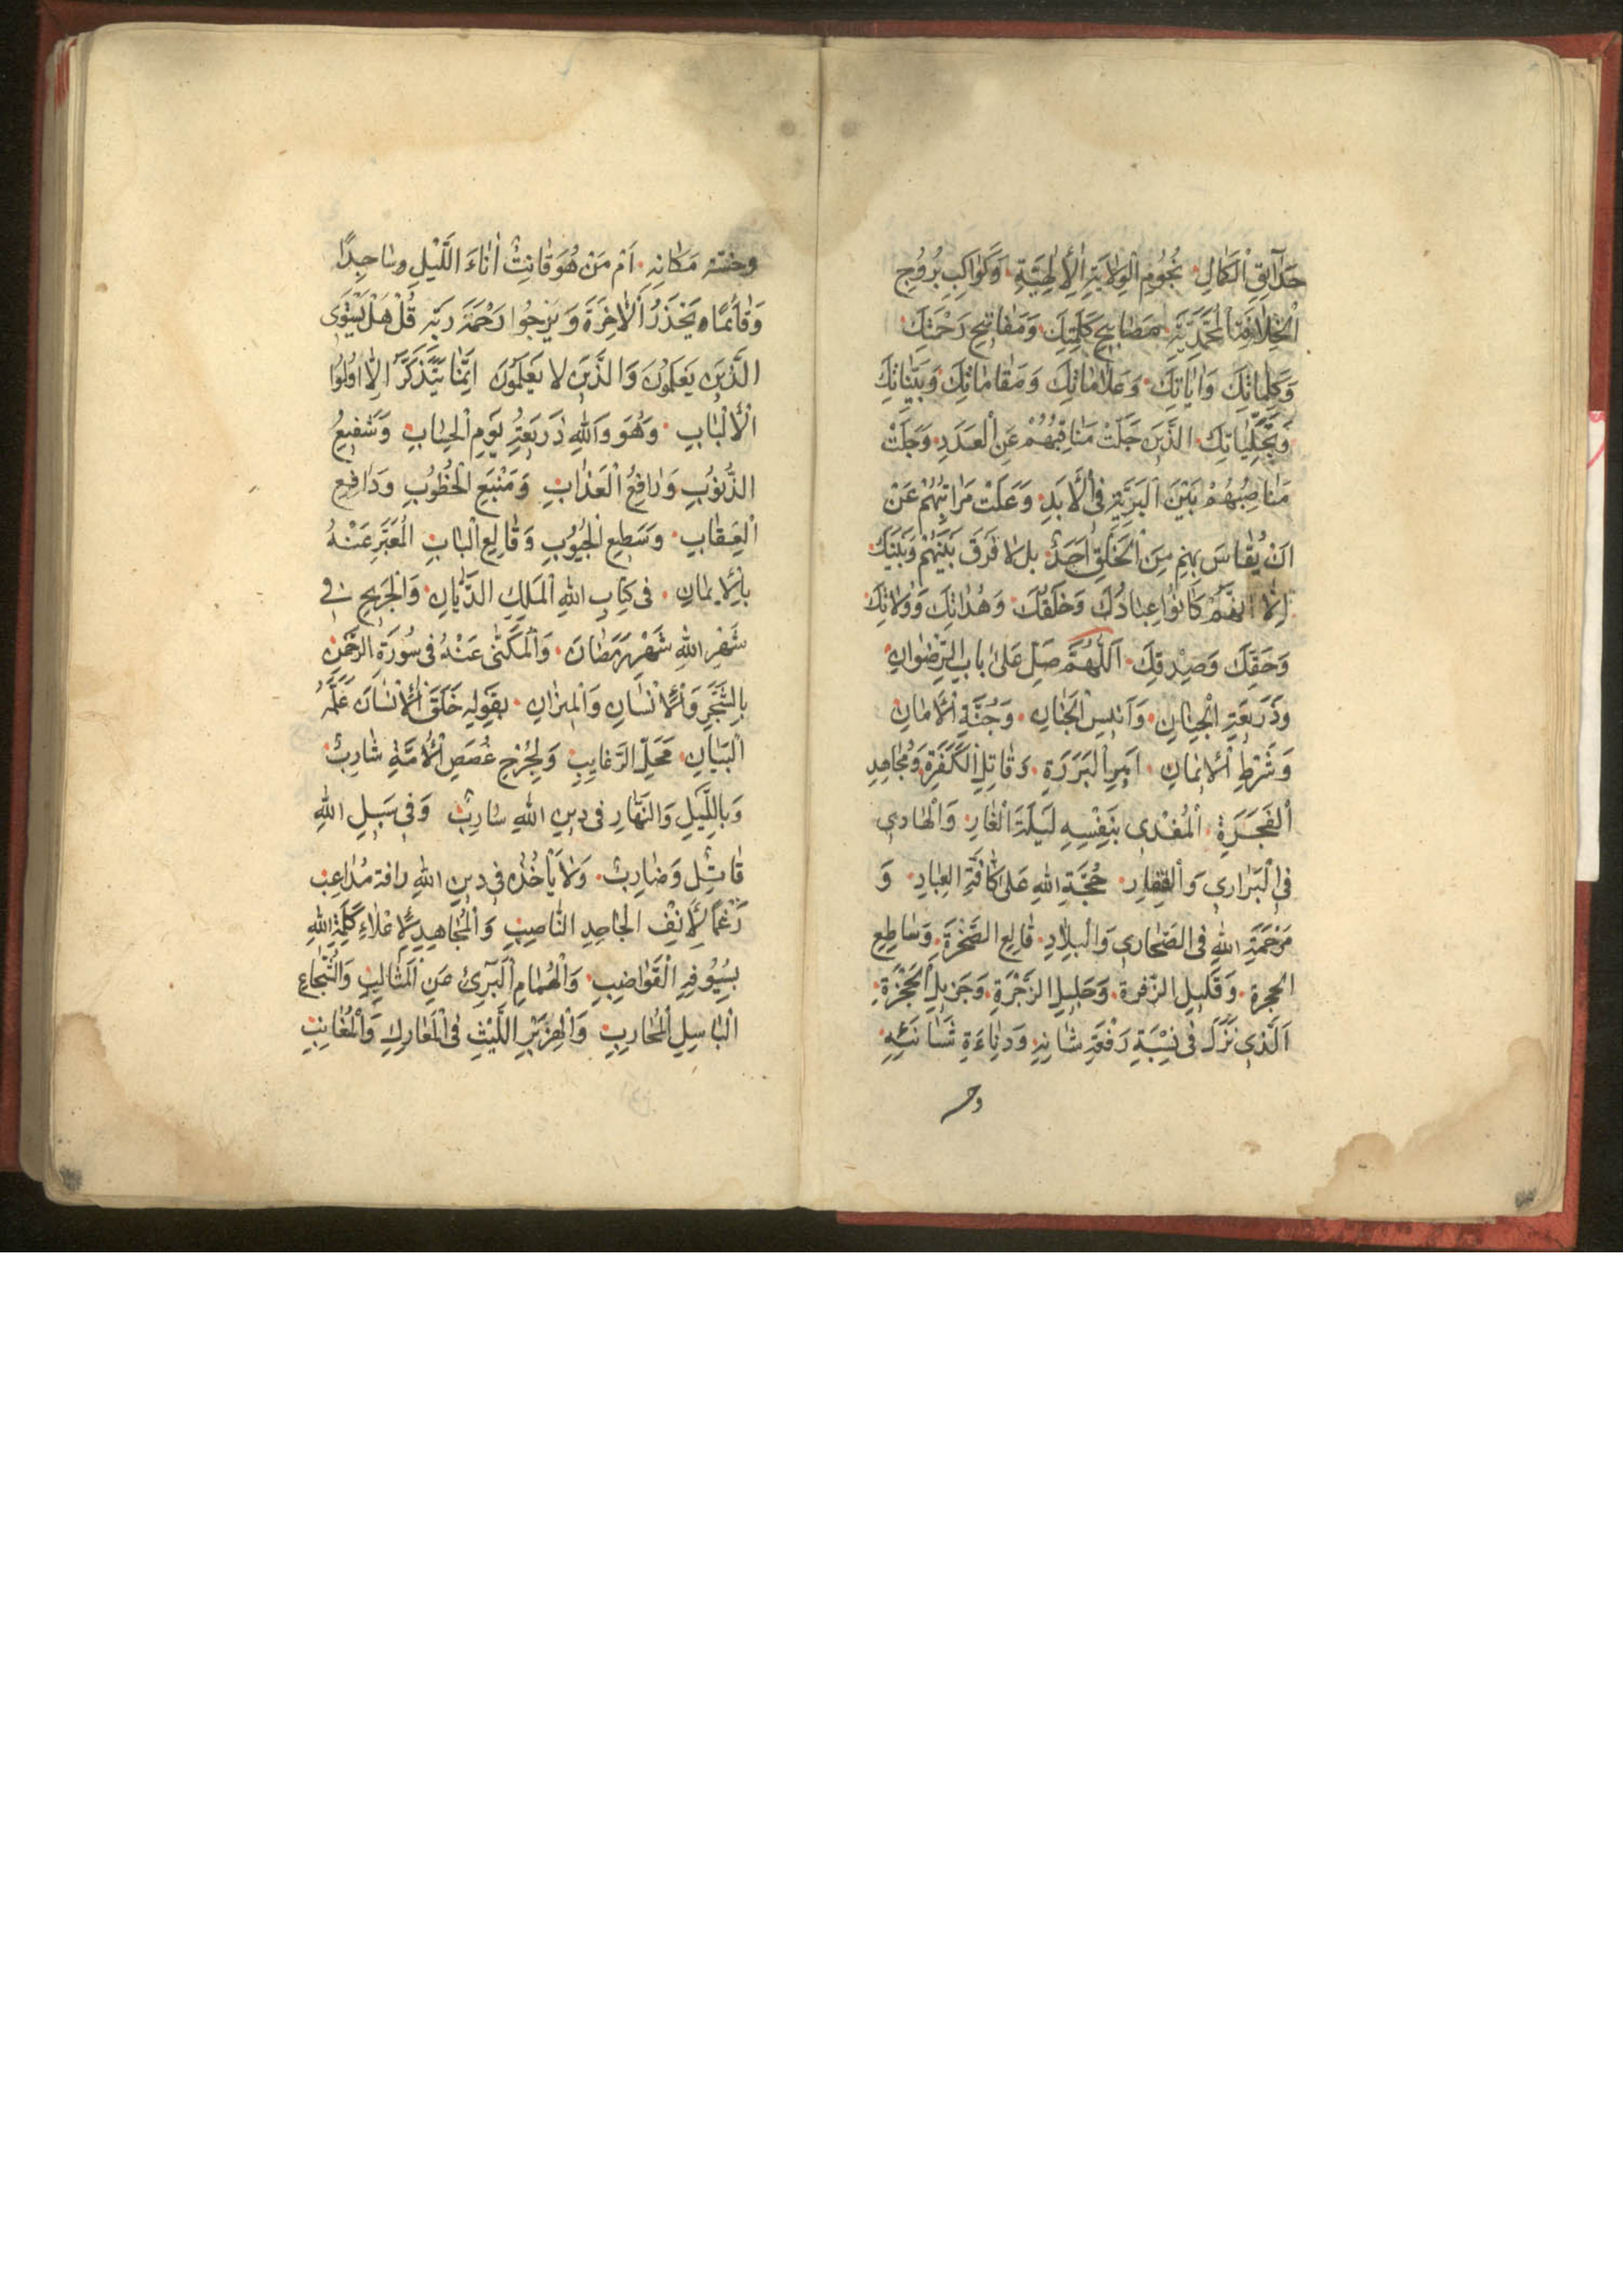 حَدٰٓائِقِ الْكَمَالِ نُجُومِ الْوِلَايَةِ الْاِلٰهِيَّةِ وَكَوٰاكِبِ بُرُوُجِ
الْخِلَافَةِ الْمُحَمَّدِيَّةِ مَصٰابِيحِ حِكْمَتِكَ وَمَفٰاتِيحِ رَحْمَتِكَ
وَكَلِمٰاتِكَ وَاٰيٰاتِكَ وَعَلٰامٰاتِكَ وَمَقٰامٰاتِكَ وَبَيِّنٰاتِكَ
وَتَجَلِّيٰاتِكَ الَّذٖينَ جَلَّتْ مَنٰاقِبُهُمْ عَنِ الْعَدَدِ وَجَلَّتْ
مَنٰاصِبُهُمْ بَيْنَ الْبَرِيَّةِ فِى الْاَبَدِ وَعَلَتْ مَرٰاتِبُهُمْ عَنْ
اَنْ يُقٰاسَ بِهِمْ مِنَ الْخَلْقِ اَحَدٌ بل لا فَرَقَ بَيْنَهُمْ وَبَيْنَكَ
اِلّٰا اَنَّهُمْ كٰانُوُا عِبٰادُكَ وَخَلْقُكَ وَهُدٰاتِكَ وَوُلَاتِكَ
وَحَقِّكَ وَصِدْقِكَ اَللّٰهُمَّ صَلِّ عَلىٰ بابِ الرِّضْوٰانِ
وَذَرٖيعَةِ الْجِنٰانِ وَاَنٖيسِ الْجَنٰانِ وَجُنَّةِ الْاَمٰانِ
وَشَرْطِ الْاٖيمٰانِ اَمٖيرِ الْبَرَرَةِ وَقٰاتِلِ الْكَفَرَةِ وَمُجٰاهِدِ
الْفَجَرَةِ الْمُفْدٖى بِنَفْسِهِ لَيْلَةَ الْغٰارِ وَالْهٰادٖى
فِى الْبَرٰارٖى وَالْقِفٰارِ حُجَّةِ اللهِ عَلىٰ كٰافَّةِ الْعِبٰادِ وَ
مَرْحَمَةِ اللهِ فِى الصَّحٰارٖى وَالْبِلٰادِ قٰالِعِ الصَّخْرَةِ وَسٰاطِعِ
الحجرة وَقَلٖيلِ الزَّفرة وَجَلٖيلِ الزَّجْرَةِ وَجَزٖيلِ الْحَجْزَةِ
اَلَّذٖى نَزَلَ فٖى نِسْبَةِ رَفْعَةِ شٰانِهِ وَدَنٰاءَةِ شٰانِئِهِ
وخ
وخسّة مَكٰانِهِ اَمْ مَنْ هُوَ قٰانِتٌ اٰنٰاءَ اللَّيْلِ وسٰاجِدًا
وَقٰائمًا يَحْذَرُ الْاٰخِرَةَ وَيَرْجُوا رَحْمَةَ رَبِّهِ قُلْ هَلْ يَسْتَوِى
الَّذٖينَ يَعْلَمُوُنَ وَالَّذٖينَ لا يَعْلَمُوُنَ اِنَّمٰا يَتَذَكَّرُ اِلّٰا اوُلُوا
الْاَلْبٰابِ وَهُوَ وَاللهِ ذَرٖيعَةُ يَوْمِ الْحِسٰابِ وَشَفٖيعُ
الذُّنوُبِ وَرٰافِعُ الْعَذٰابِ وَمَنْبَعِ الْخُطُوُبِ وَدٰافِعِ
الْعِقٰابِ وسَطِعِ الْجُيُوُبِ وَقٰالِعِ الْبٰابِ الْمُعَبَّرِ عَنْهُ
بِالْاٖيمٰانِ فٖى كِتٰابِ اللهِ الْمَلِكِ الدَّيّٰانِ وَالْجَرٖيحِ فٖى
شَهْرِ اللهِ شَهْرِ رَمَضٰانَ وَالْمُكَنّٰى عَنْهُ فٖى سُورَةِ الرَّحْمٰنِ
بِالشَّجَرِ وَالْاِنْسٰانِ وَالْمٖيزٰانِ بِقَوْلِهِ خَلَقَ الْاِنْسٰانَ عَلَّمَهُ
الْبَيٰانَ مَحَلِّ الرَّغٰايِبِ وَلِجُرْحِ غُصَصِ الْاُمَّةِ شٰارِبٌ
وَبِاللَّيْلِ وَالنَّهٰارِ فٖى دٖينِ اللهِ سٰارِبٌ وَفٖى سَبٖيلِ اللهِ
قٰاتِلٌ وَضٰارِبٌ وَلَا يَاْخُذُهُ فٖى دٖينِ اللهِ رافة مُدٰاعِبٍ
رَغْمًا لِاَنْفِ الْجٰاحِدِ النّٰاصِبِ وَالْمُجٰاهِدِ لِاِعْلٰاءِ كَلِمَةِ اللهِ
بِسُيُوفِهِ الْقَوٰاضِبِ وَالْهُمٰامِ الْبَرٖىءِ مِنَ الْمَثٰالِبِ وَالشُّجٰاعِ
الْبٰاسِلِ الْمُحٰارِبِ وَالْهِزَبْرِ اللَّيْثِ فِى الْمَعٰارِكِ وَالْمَغٰانِبِ